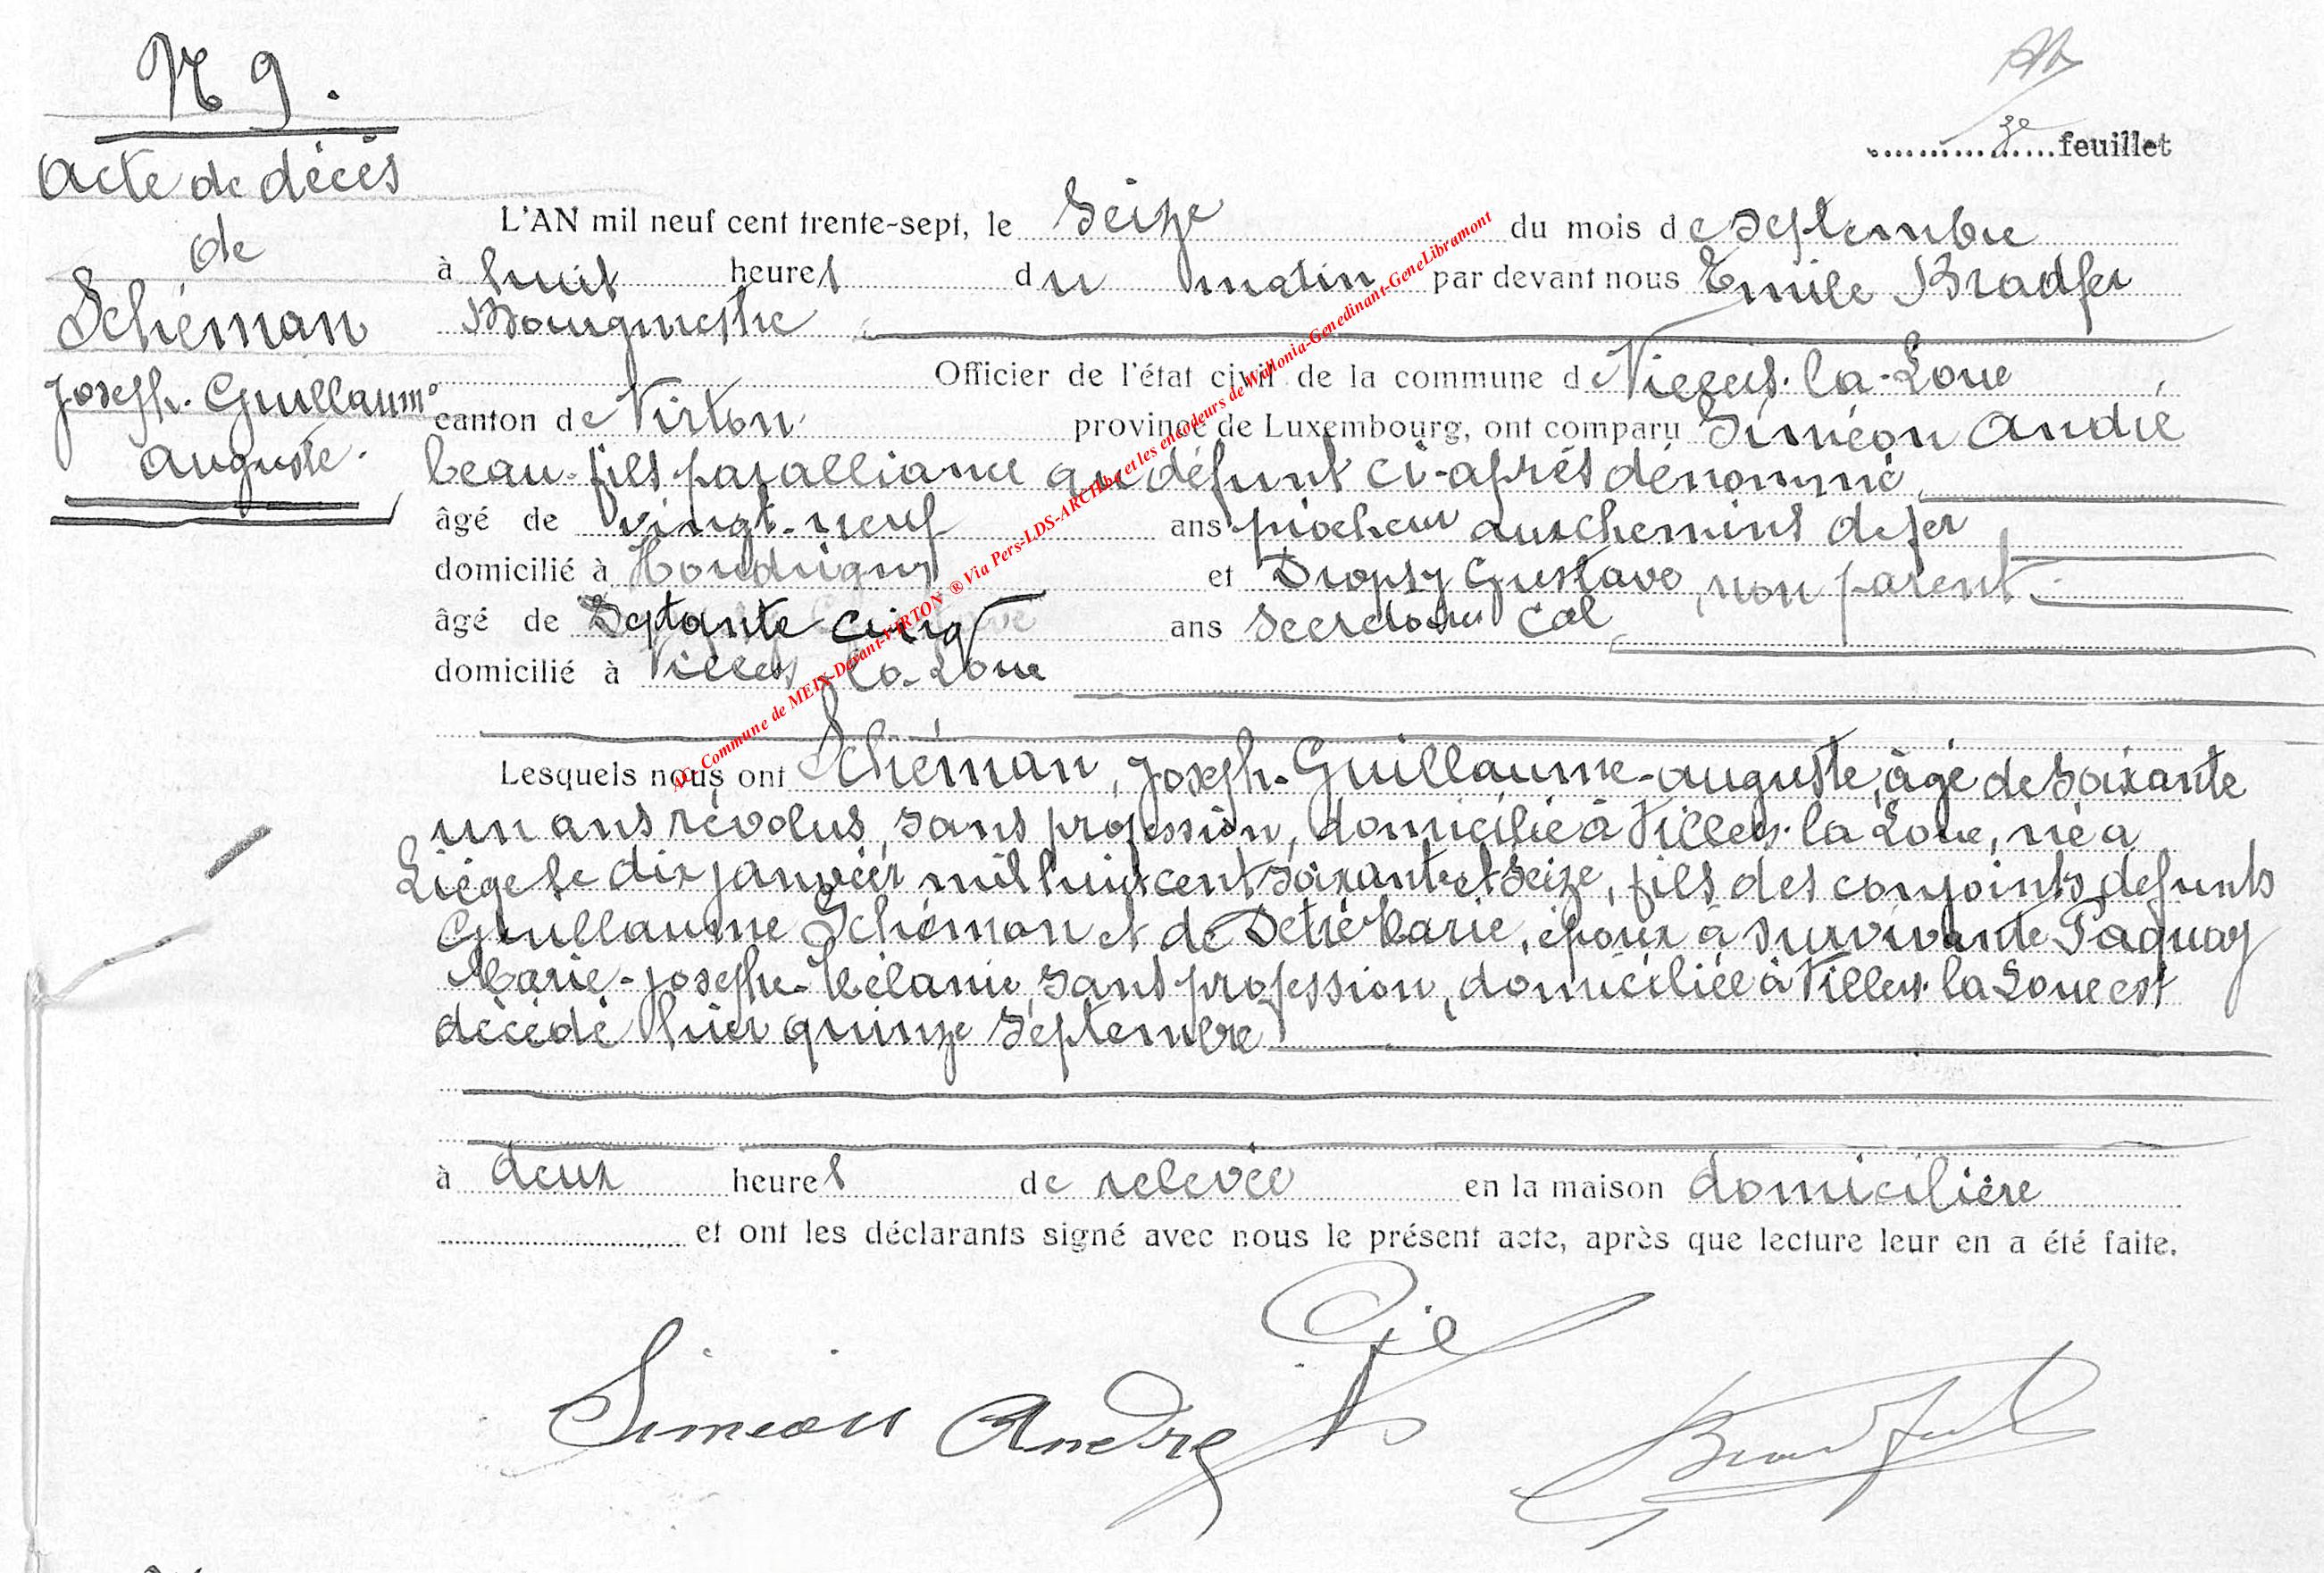 N 9.
Acte de décès
de
Schéman
Joseph-Guillaume
Auguste.
3e feuillet
L'AN mil neuf cent trente-sept, le Seize du mois de Septembre
à huit heures du matin par devant nous Emile Bradfer
Bourgmestre
Officier de l'état civil de la commune de Villers-la-Loue,
canton de Virton province de Luxembourg, ont comparu Siméon André
beau-fils par alliance au défunt ci-après dénommé,
âgé de vingt-neuf ans piocheur aux chemins de fer
domicilié à Houdrigny et Dropsy Gustave, non parent.
âgé de Septante cinq ans secrétaire Cal
domicilié à Villers-la-Loue
Lesquels nous ont Schéman, Joseph-Guillaume-Auguste, âgé de soixante
un ans révolus, sans profession, domicilié à Villers-la Loue, né à
Liége le dix janvier mil huit cent soixante et seize, fils des conjoints défunts
Guillaume Schéman et de Detré Marie, époux à survivante Paquay
Marie-Josephe-Mélanie, sans profession, domiciliée à Villers-la Loue est
décédé hier quinze septembre
à deux heures de relevée en la maison domicilière
et ont les déclarants signé avec nous le présent acte, après que lecture leur en a été faite.
Simeon André
Bradfer
AC- Commune de MEIX-Devant-VIRTON ® Via Pers-LDS-ARCH.be et les encodeurs de Wallonia-Genedinant-GeneLibramont